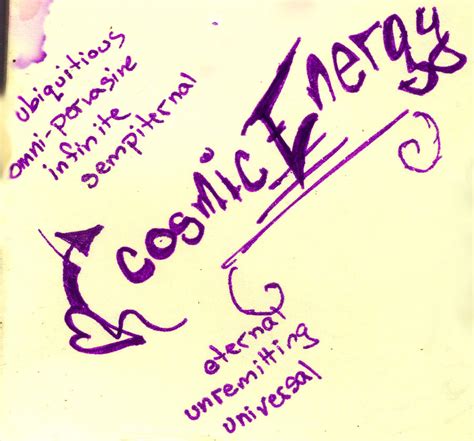 ubiquitious
omni-pervasive
infinite
sempiternal
cosmic Energy
eternal
unremitting
universal